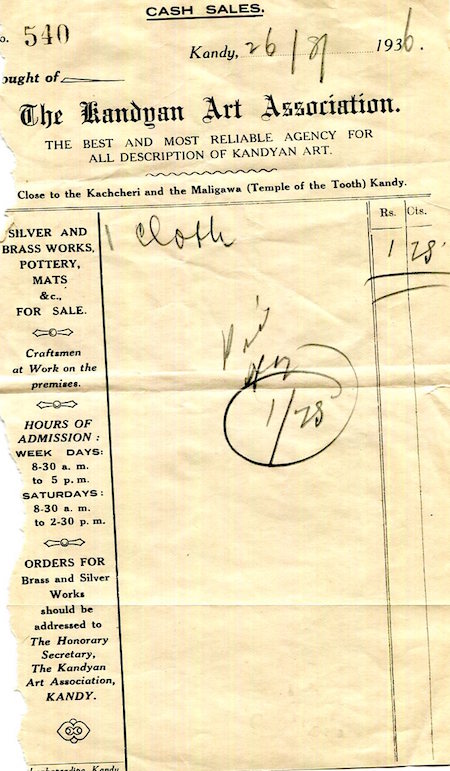 CASH SALES.
o. 540
Kandy, 26/8/ 1936.
ought of
The Kandyan Art Association.
THE BEST AND MOST RELIABLE AGENCY FOR
ALL DESCRIPTION OF KANDYAN ART.
Close to the Kachcheri and the Maligawa (Temple of the Tooth) Kandy.
Rs. Cts.
1 cloth 1 28
SILVER AND
BRASS WORKS,
POTTERY,
MATS
&c.,
FOR SALE.
Craftsmen
at Work on the
premises.
HOURS OF
ADMISSION :
WEEK DAYS:
8-30 a. m.
to 5 p. m.
SATURDAYS :
8-30 a. m.
to 2-30 p. m.
ORDERS FOR
Brass and Silver
Works
should be
addressed to
The Honorary
Secretary,
The Kandyan
Art Association,
KANDY.
Paid
1/28
Kandy